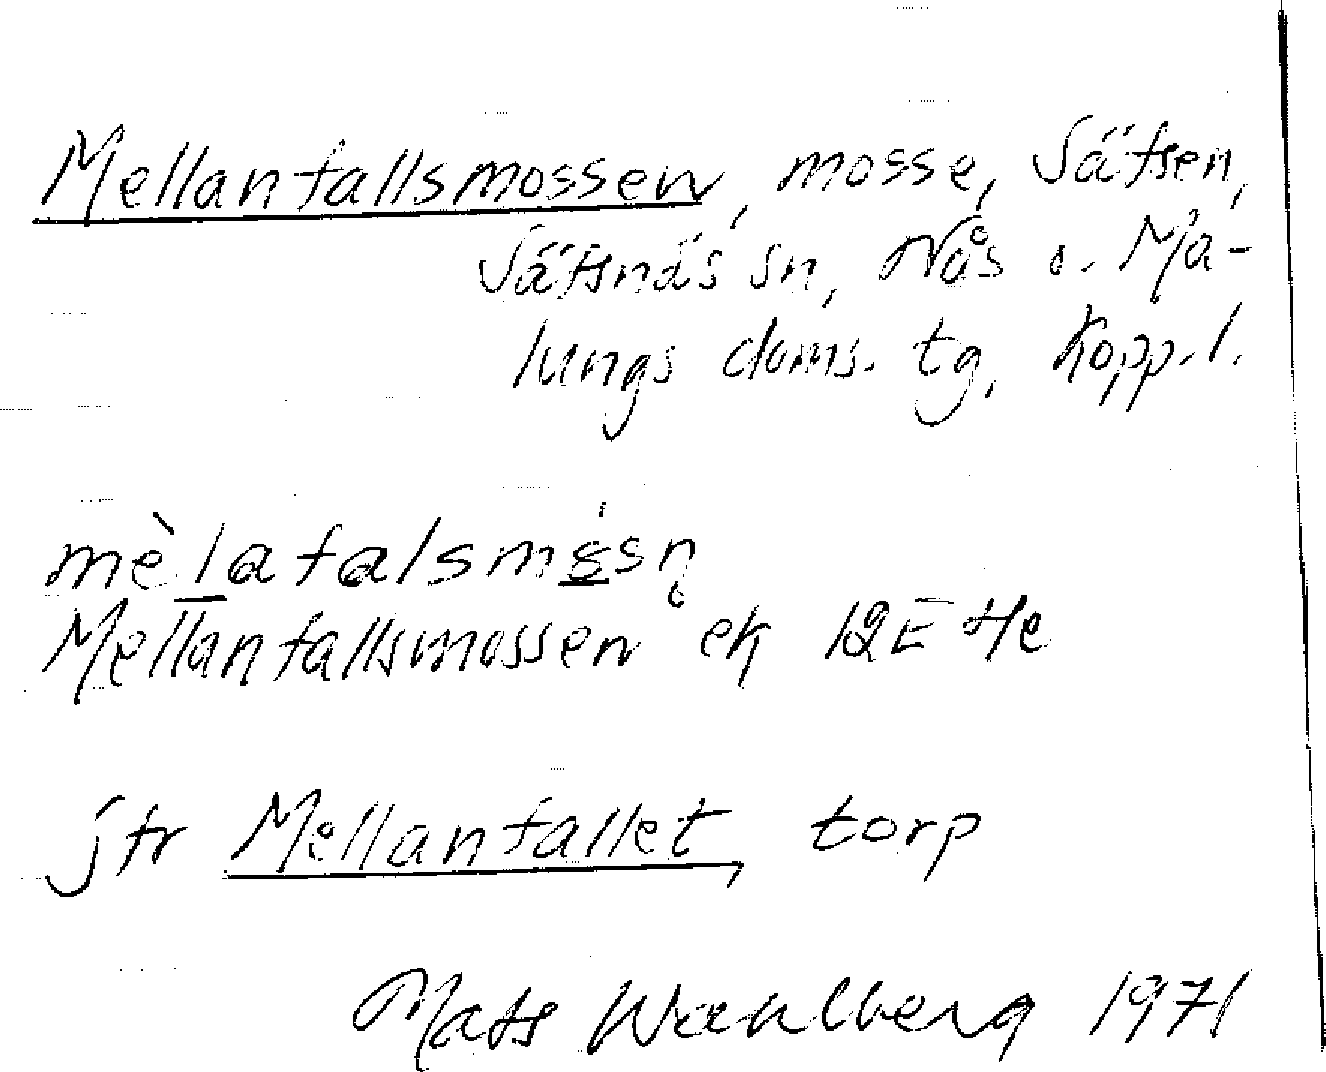 Mellanfallsmossen, mosse, Säfsen,
Säfsnäs sn, Nås o. Ma-
lungs doms. tg, Kopp. l.
Mellanfallsmossen ek 12E 4e
jfr Mellanfallet, torp
Mats Wahlberg 1971